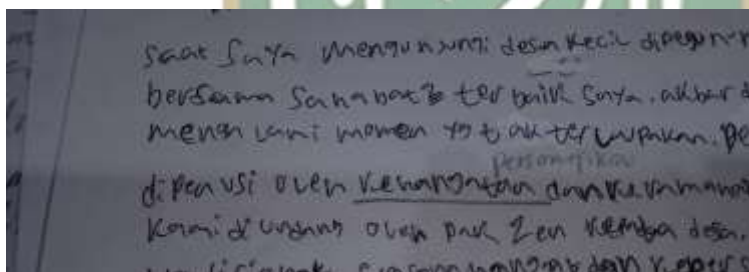 saat saya mengunjungi desa kecil dipegunu
bersama sahabat2 terbaik saya. akbar d
mengalami momen yg tak terlupakan. Pe
personifikasi
dipenusi oleh kehangatan dan keramahan
Kami diundang oleh pak Zen kepala desa.